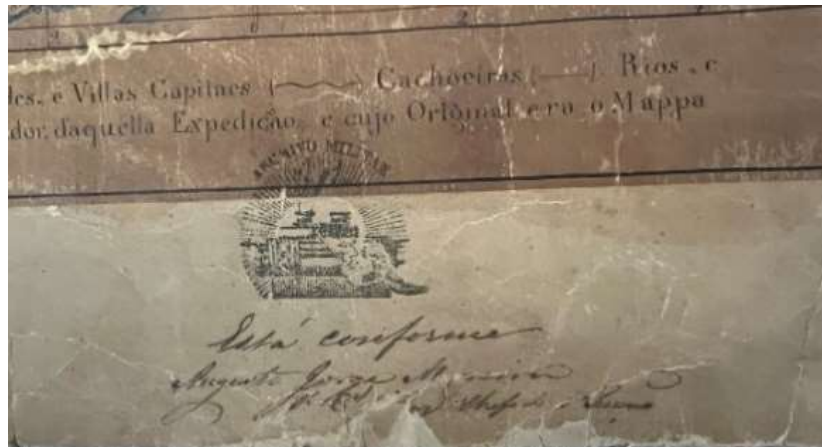 des, e Villas Capitaes ( ) Cachoeiras ( ). Rios, e
dor, daquella Expedição, e cujo Original era o Mappa
ARCHIVO MILITAR
Está conforme
Augusto Jorge